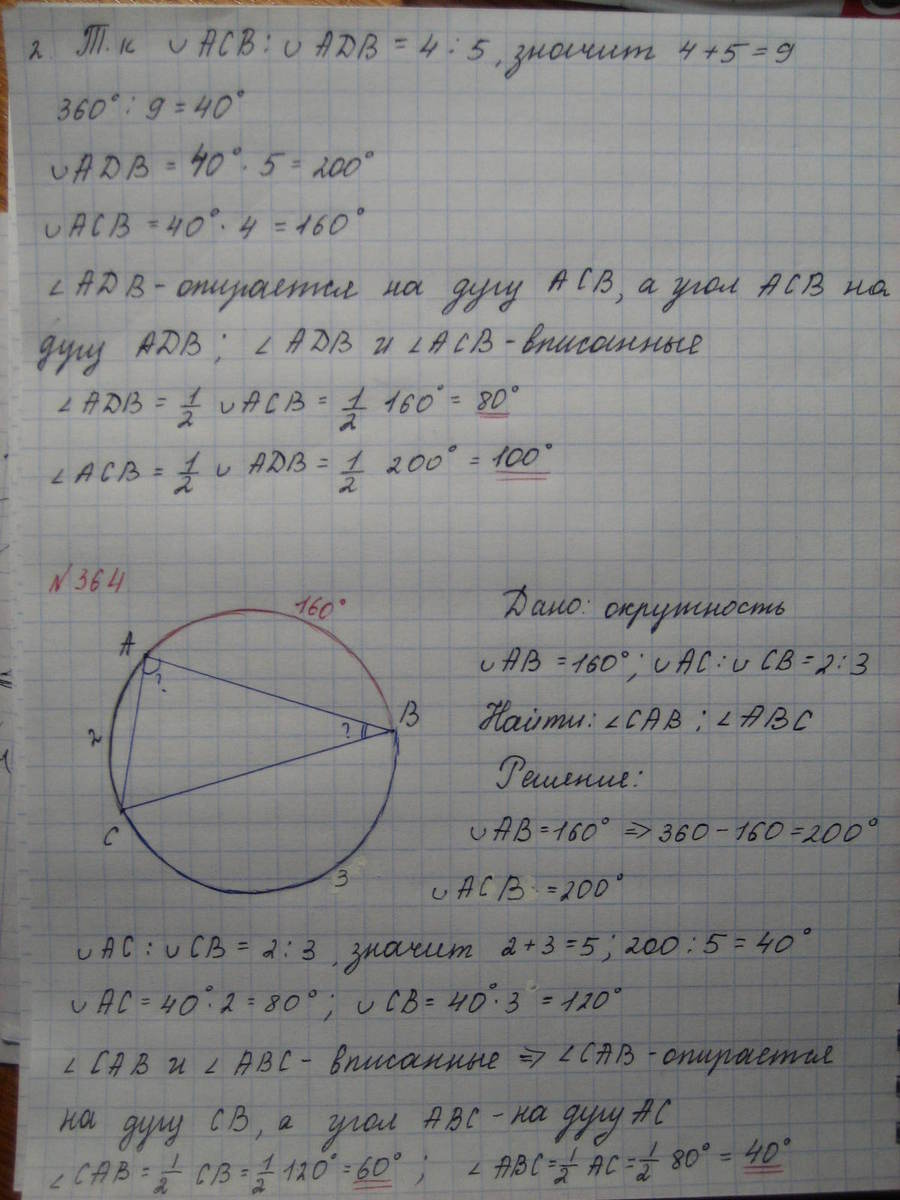 2. Т.к ∪ACB : ∪ADB = 4 : 5, значит 4+5=9
360° : 9 = 40°
∪ADB = 40° · 5 = 200°
∪ACB = 40° · 4 = 160°
∠ADB - опирается на дугу ACB, а угол ACB на
дугу ADB; ∠ADB и ∠ACB - вписанные
∠ADB = 1/2 ∪ACB = 1/2 160° = 80°
∠ACB = 1/2 ∪ADB = 1/2 200° = 100°
N364
160°
A
?
B
?
2
C
3
Дано: окружность
∪AB = 160°; ∪AC : ∪CB = 2 : 3
Найти: ∠CAB; ∠ABC
Решение:
∪AB = 160° ⇒ 360 - 160 = 200°
∪ACB = 200°
∪AC : ∪CB = 2 : 3, значит 2+3=5; 200 : 5 = 40°
∪AC = 40° · 2 = 80°; ∪CB = 40° · 3 = 120°
∠CAB и ∠ABC - вписанные ⇒ ∠CAB - опирается
на дугу CB, а угол ABC - на дугу AC
∠CAB = 1/2 CB = 1/2 120° = 60°; ∠ABC = 1/2 AC = 1/2 80° = 40°